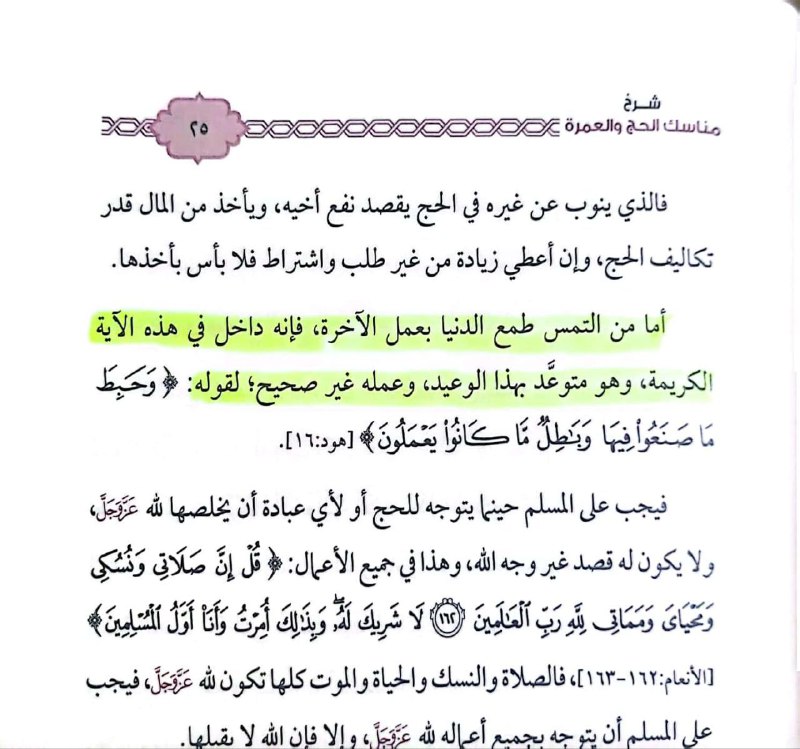 شرح
مناسك الحج والعمرة
٢٥
فالذي ينوب عن غيره في الحج يقصد نفع أخيه، ويأخذ من المال قدر
تكاليف الحج، وإن أعطي زيادة من غير طلب واشتراط فلا بأس بأخذها.
أما من التمس طمع الدنيا بعمل الآخرة، فإنه داخل في هذه الآية
الكريمة، وهو متوعَّد بهذا الوعيد، وعمله غير صحيح؛ لقوله: ﴿ وَحَبِطَ
مَا صَنَعُوا۟ فِيهَا وَبَـٰطِلٌ مَّا كَانُوا۟ يَعْمَلُونَ﴾ [هود:١٦].
فيجب على المسلم حينما يتوجه للحج أو لأي عبادة أن يخلصها لله عَزَّوَجَلَّ،
ولا يكون له قصد غير وجه الله، وهذا في جميع الأعمال: ﴿ قُلْ إِنَّ صَلَاتِى وَنُسُكِى
وَمَحْيَاىَ وَمَمَاتِى لِلَّهِ رَبِّ الْعَـٰلَمِينَ ١٦٢ لَا شَرِيكَ لَهُۥۖ وَبِذَٰلِكَ أُمِرْتُ وَأَنَا۠ أَوَّلُ الْمُسْلِمِينَ﴾
[الأنعام:١٦٢-١٦٣]، فالصلاة والنسك والحياة والموت كلها تكون لله عَزَّوَجَلَّ، فيجب
على المسلم أن يتوجه بجميع أعماله لله عَزَّوَجَلَّ، وإلا فإن الله لا يقبلها.